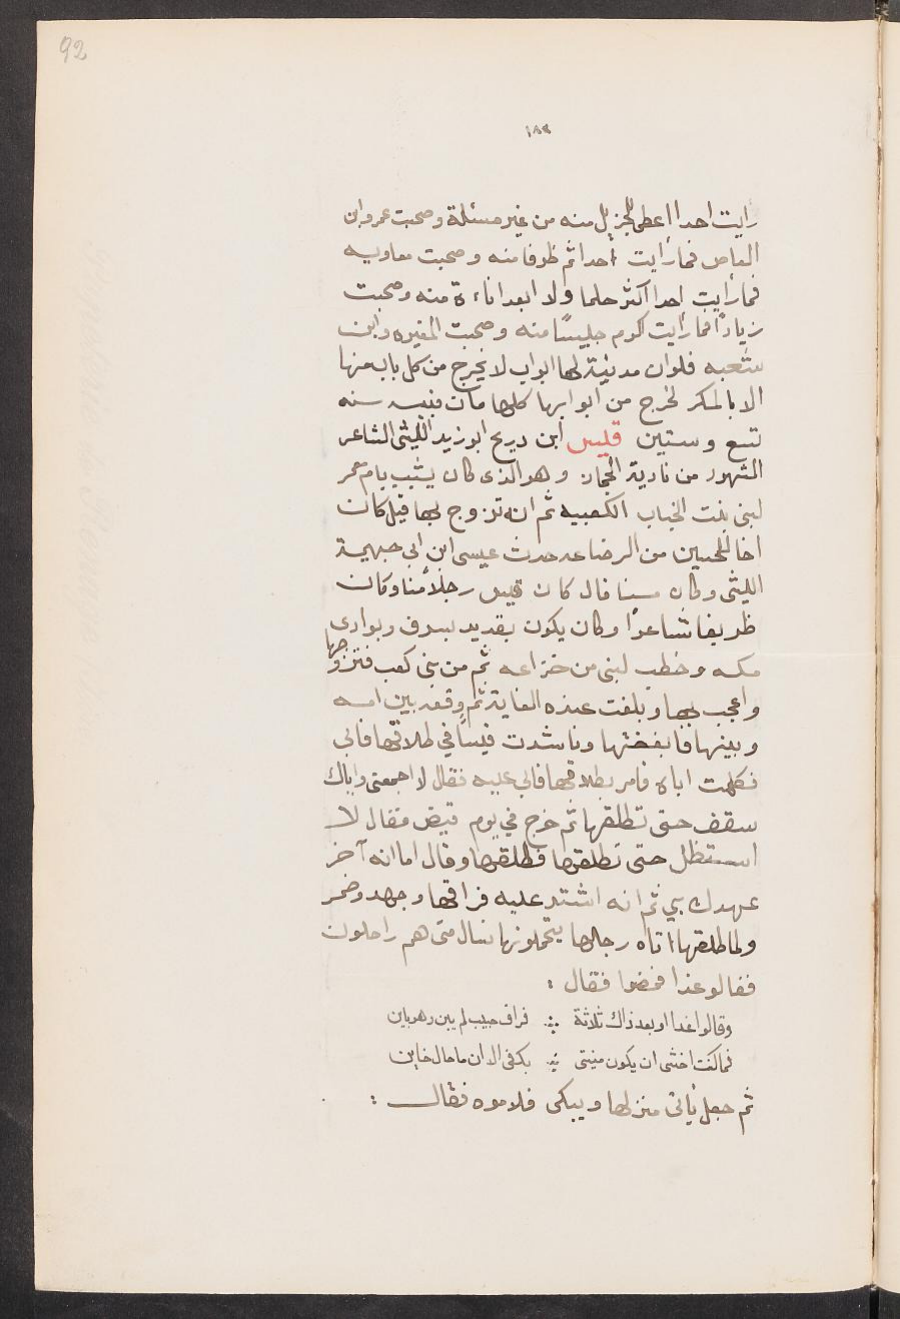 92
١٨٣
رايت احدا اعطى للجزيل منه من غير مسئلة وصحبت عمرو ابن
العاص فما رايت احدا ثم ظرفا منه وصحبت معاويه
فما رايت احدا اكثر حلما ولا ابعد اناءة منه وصحبت
زيادًا فما رايت اكرم جليسًا منه وصحبت المغيره وابن
شعبه فلو ان مدينة لها ابواب لا يخرج من كل باب منها
الا بالمكر لخرج من ابوابها كلها مات قبيسه سنه
تسع وستين قليس ابن دريح ابو زيد الليثى الشاعر
المشهور من نادية الحجاز وهو الذى كان يشبب بام معمر
لبنى بنت الخباب الكعبيه ثم انه تزوج بها قيل كان
اخا للحسين من الرضاعه حدث عيسى ابن ابى جهيمة
الليثى وكان مسنا قال كان قيس رجلاً منا وكان
ظريفا شاعرًا وكان يكون بقديد بسرف وبوادى
مكه وخطب لبنى من خزاعه ثم من بنى كعب فتزوجها
واعجب بها وبلغت عنده الغاية ثم وقعه بين امه
وبينها فابغضتها وناشدت قيساً في طلاقها فابى
فكلمت اباه فامر بطلاقها فابى عليه فقال لا اجمعنى واياك
سقف حتى تطلقها ثم خرج في يوم قيض فقال لا
استظل حتى تطلقها فطلقها وقال اما انه آخر
عهدك بي ثم انه اشتد عليه فراقها وجهد وضمر
ولما طلقها اتاه رجالها يتحملونها سال متى هم راحلون
فقالو غدا فمضوا فقال :
وقالوا غدا او بعد ذاك ثلاثة ∴ فراق حبيب لم يبن وهو باين
فما كنت اخشى ان يكون منيتى ∴ بكفى الا ان ما حال خاين
ثم جعل يأتى منزلها ويبكى فلاموه فقال :